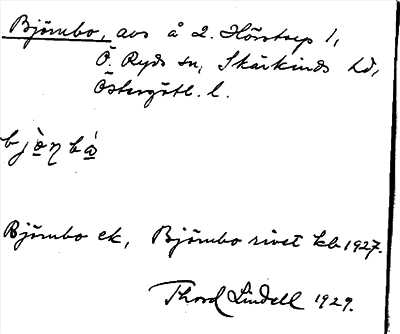 Björnbo, avs å 2. Hörstorp 1,
Ö. Ryds sn, Skärkinds hd,
Östergötl. l.
Björnbo ek, Björnbo rivet kb 1927.
Thord Lindell 1929.